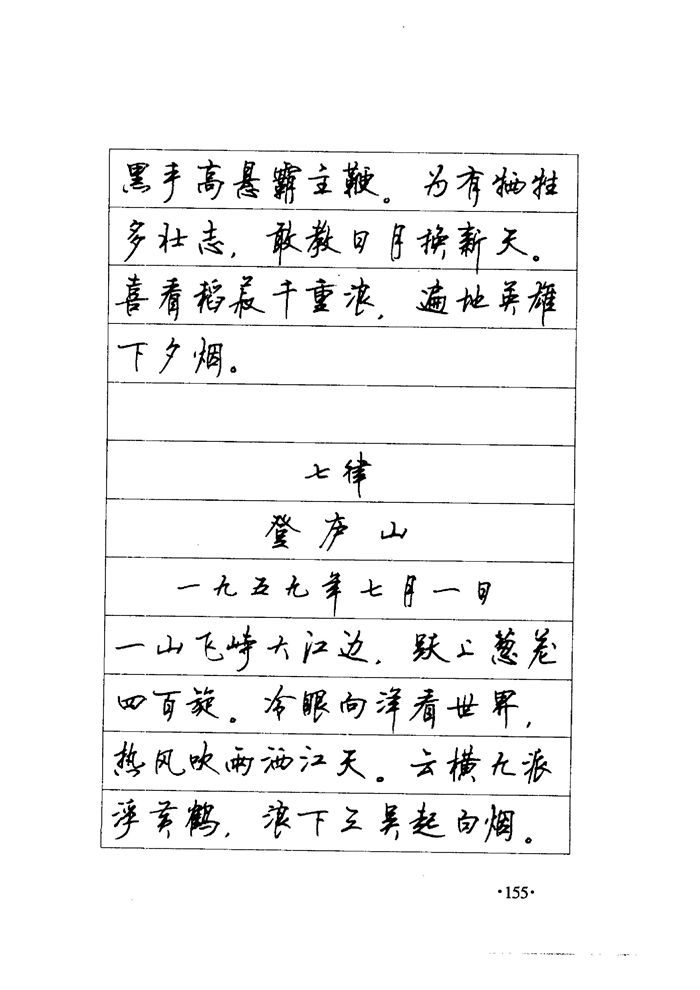 黑手高悬霸主鞭。为有牺牲
多壮志，敢教日月换新天。
喜看稻菽千重浪，遍地英雄
下夕烟。
七律
登庐山
一九五九年七月一日
一山飞峙大江边，跃上葱茏
四百旋。冷眼向洋看世界，
热风吹雨洒江天。云横九派
浮黄鹤，浪下三吴起白烟。
·155·